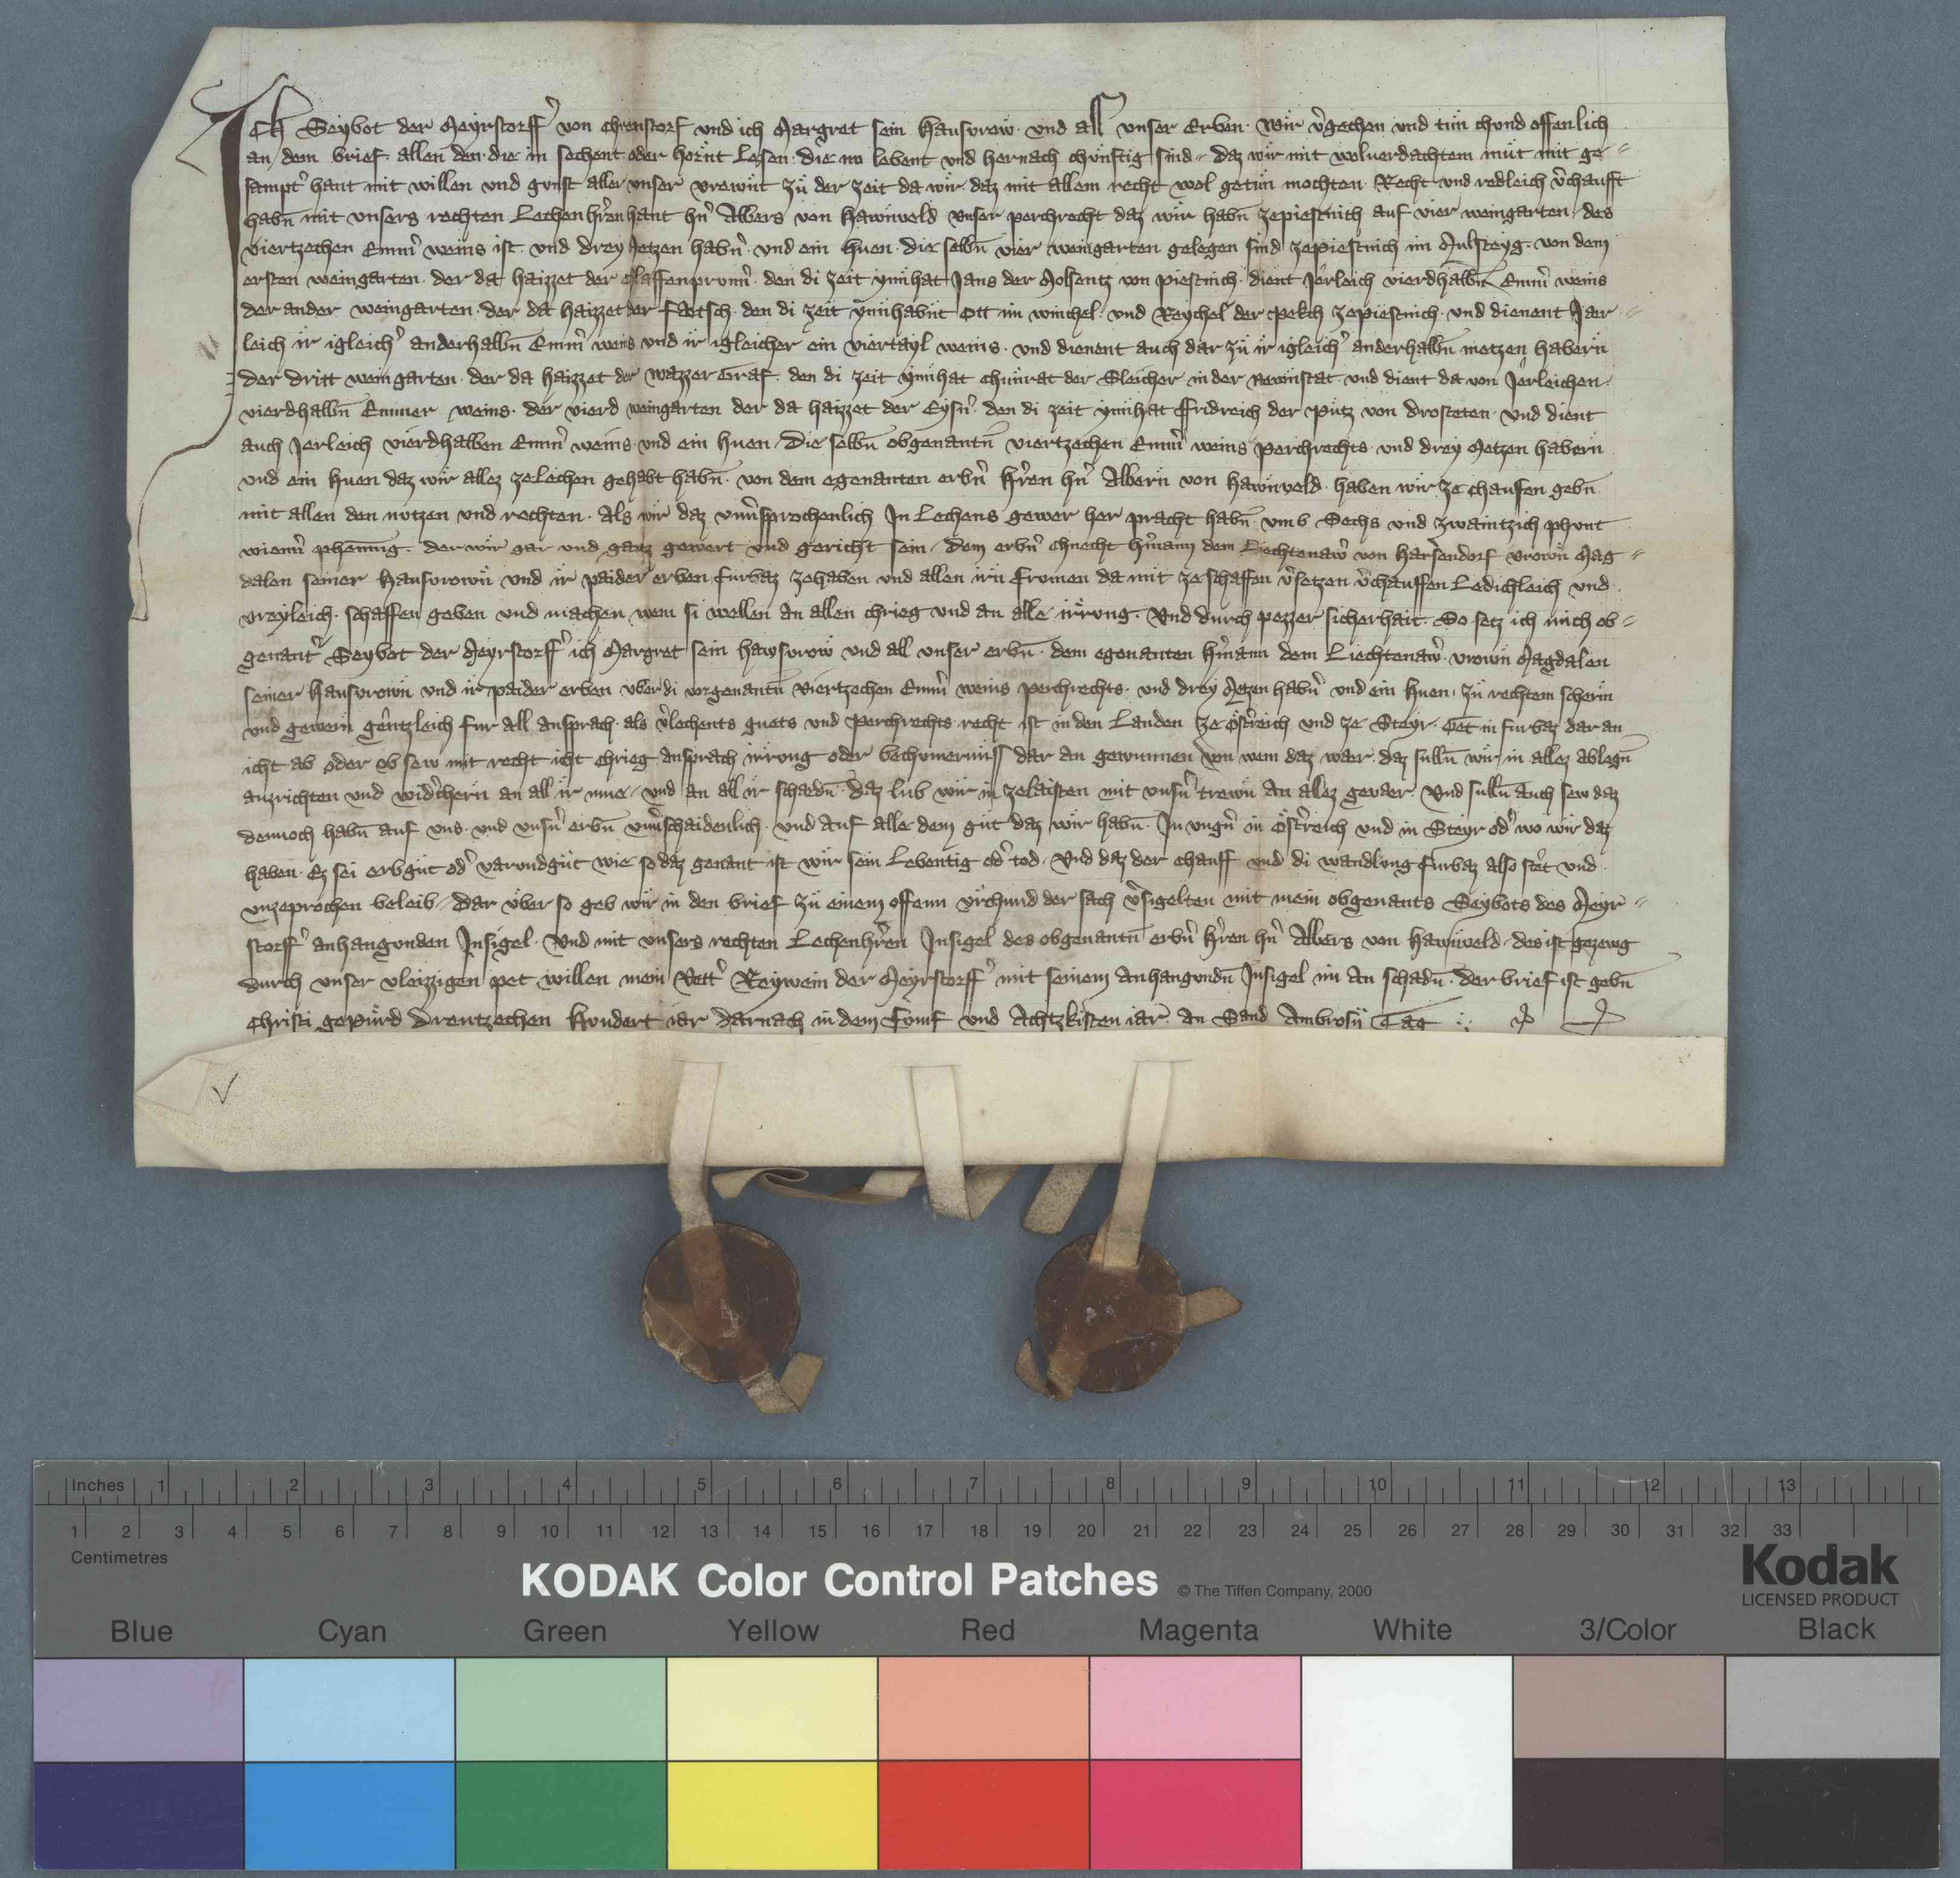 Ich Seybot der Meyrstorffer von Chrenstorf und ich Margret sein Hausvrow und all unser Erben Wir vergechen und tun chund offenlich
an dem brief allen den die in sechent oder hornt Lesen die nu lebent und hernach chunftig sind daz wir mit wolverdachtem mut mit ge=
sampter hant mit willen und gunst aller unser vrewnt zu der zeit da wir daz mit allem recht wol getun mochten Recht und redleich verchaufft
habn mit unsers rechten Lechenherren hant hern Albers von Hawnveld unser perchrecht daz wir habn zepiestnich auf vier weingarten des
viertzechen Emmer weins ist und drey Metzen habern und ein huen die selbn vier weingarten gelegen sind zepiestnich im von dem
ersten weingarten der da haizzet der den di zeit ynnhat Jans der von piestnich dient Jerleich vierdhalbn Emmer weins
der ander weingarten der da haizzet der den di zeit ynnhabnt Ott im winchel und Reychel der zepiestnich und dienent Jar=
leich ir igleicher anderhalbn Emmer weins und ir igleicher ein viertayl weins und dienent auch dar zu ir igleicher anderhalbn metzen habern
der dritt weingarten der da haizzet der wazzer Graf den di zeit ynnhat Chunrat der Sleicher in der Newnstat und dient da von Jerleichen
vierdhalbn Emmer weins der vierd weingarten der da haizzet der den di zeit ynnhat Fridreich der putz von drosteten und dient
auch Jerleich vierdhalben Emmer weins und ein huen Die selbn obgenantn viertzechen Emmer weins perchrechts und drey Metzen habern
und ein huen daz wir allez zelechen gehabt habn von dem egenanten erbern herren hern Albern von Hawnveld haben wir ze chaufen gebn
mit allen den nutzen und rechten Als wir daz unversprochenlich In Lechens gewer her pracht habn umb Sechs und zwaintzich phunt
wienner phenning der wir gar und gantz gewert und gericht sein dem erbern chnecht hermann dem Liechtenawer von Harsendorf vrown Mag=
dalen seiner Hausvrown und ir paider erben furbaz zehaben und allen irn frumen da mit ze schaffen versetzen verchauffen Ledichleich und
vreyleich schaffen geben und machen wem si wellen an allen chrieg und an alle irrung Und durch pezzer sicherhait So setz ich mich ob=
genanter Seybot der Meyrstorffer ich Margret sein hawsvrow und all unser erbn dem egenanten hermann dem Liechtenawer vrown Magdalen
seiner Hausvrown und ir paider erben uber di vorgenantn Viertzechen Emmer weins perchrechts und drey Metzen habern und ein huen zu rechtem scherm
und gewern gentzleich fur all ansprach als verlechents guets und perchrechts recht ist in den Landen ze Osterreich und ze Steyr Get in furbaz dar an
icht ab oder ob sew mit recht icht chrieg ansprach irrung oder bechumernuss dar an gewunnen von wem daz waer daz sulln wir in allez ablegn
auzrichten und widerchern an all ir mue und an all ir schadn daz lub wir in zelaisten mit unsern trewn An allez gevaer Und sulln auch sew daz
dennoch habn auf uns und unsern erbn unverschaidenlich und auf alle dem gut daz wir habn In ungern in Osterreich und in Steyr oder wo wir daz
haben Ez sei erbgut oder varundgut wie so daz genant ist wir sein Lebentig oder tod Und daz der chauff und di wandlung furbaz also stet und
unzeprochen beleib Dar uber so geb wir in den brief zu einem offenn urchund der sach versigelten mit mein obgenants Seybots des Meyr=
storffer anhangunden Insigel Und mit unsers rechten Lechenherren Insigel des obgenantn erbern herren hern Albers von Hawnveld des ist gezewg
durch unser vleizzigen pet willen mein Vetter Reywein der Meyrstorffer mit seinem Anhangundn Insigel im An schadn der brief ist gebn
Christi gepurd Dreutzechen Hundert iar darnach in dem Fumf und Achtzkisten iar An Sand Ambrosy Tag
Inches 1 2 3 4 5 6 7 8 9 10 11 12 13
1 2 3 4 5 6 7 8 9 10 11 12 13 14 15 16 17 18 19 20 21 22 23 24 25 26 27 28 29 30 31 32 33
Centimetres
KODAK Color Control Patches © The Tiffen Company, 2000
Kodak
LICENSED PRODUCT
Blue Cyan Green Yellow Red Magenta White 3/Color Black